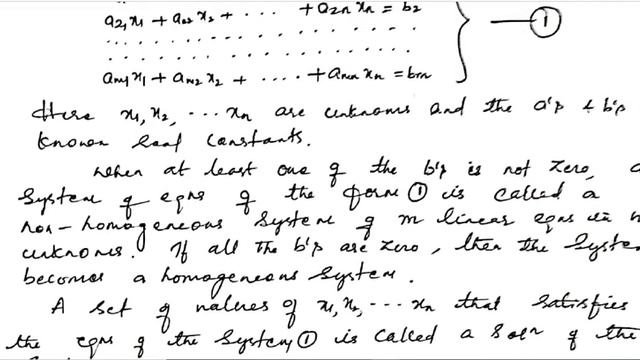 a21x1 + a22x2 + ..... + a2nxn = b2
.............
.............
am1x1 + am2x2 + ..... + amnxn = bm
①
Here x1, x2, ... xn are unknowns and the a's & b's
known real constants.
When at least one of the b's is not zero,
System of eqns of the form ① is called a
non-homogeneous system of m linear eqns in n
unknowns. If all the b's are zero, then the System
becomes a homogeneous System.
A set of values of x1, x2, ... xn that satisfies
the eqns of the System ① is called a soln of the